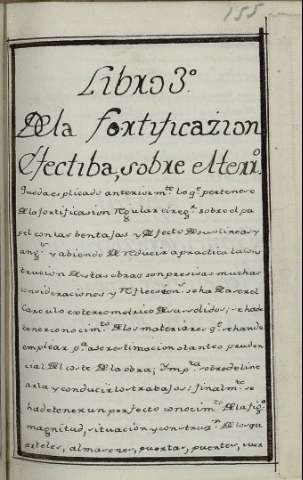 155
Libro 3º
De la fortificazion
Efectiba, sobre el terrº.
Queda esplicado anteriormte. lo qe. pertenece
A la fortificasion Regular e irregr. sobre el pa
pel con las bentajas y defectos de sus lineas y
angs. y abiendo de reducir a practica la cons
trucion de estas obras son presisas muchas
consideraciones y reflecsions. se ha de aser el
Carculo estereometrico de sus solidos; se ha de
tener conocimto. de los materiares qe. se han de
emplear pa. aser estimacion o tanteo pruden
cial del coste de la obra; Impta. sobre deline
arla y conducir los trabajos; finalmte. se
ha de tener un perfecto conocimto. de la figa.
magnitud, situacion y construn. de los qu
arteles, almasenes, puertas, puentes, cuer